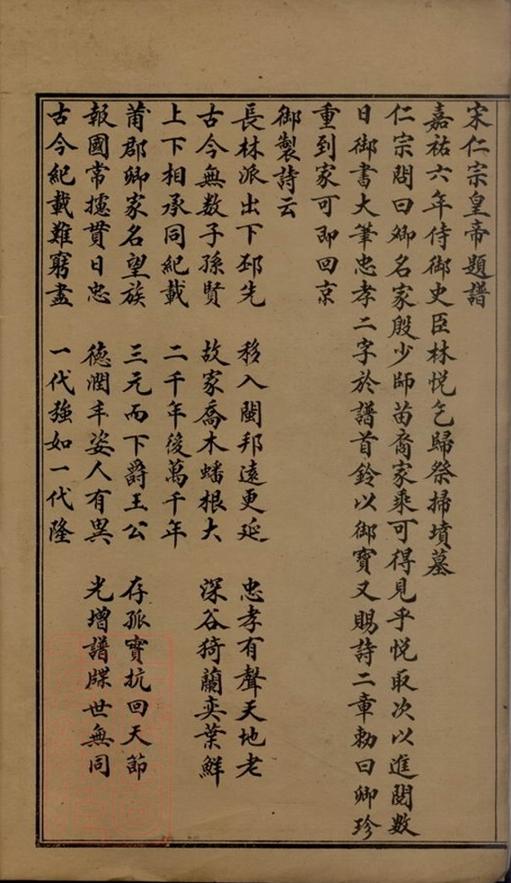 宋仁宗皇帝題譜
嘉祐六年侍御史臣林悦乞歸祭掃墳墓
仁宗問曰卿名家殷少師苗裔家乘可得見乎悦取次以進閱數
日御書大筆忠孝二字於譜首鈐以御寶又賜詩二章勅曰卿珍
重到家可即回京
御製詩云
長林派出下邳先 移入閩邦遠更延 忠孝有聲天地老
古今無数子孫賢 故家喬木蟠根大 深谷猗蘭奕葉鮮
上下相承同紀載 二千年後萬千年
莆郡卿家名望族 三元而下爵王公 存孤實抗回天節
報國常攄貫日忠 德潤丰姿人有異 光增譜牒世無同
古今紀載難窮盡 一代強如一代隆